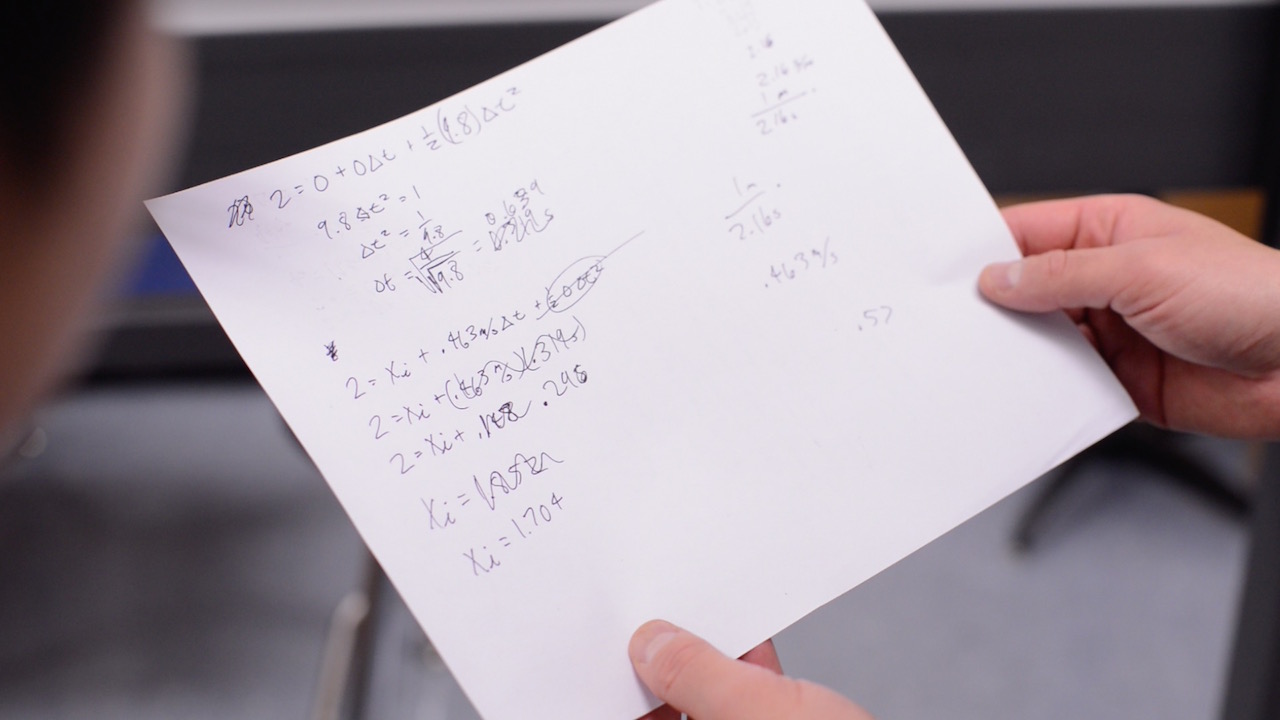 2 = 0 + 0Δt + ½(9.8)Δt²
9.8 Δt² = 1
Δt² = 1/9.8
Δt = √4/√9.8 = 0.639
2 = Xi + .463 m/s Δt + ½ 0 Δt²
2 = Xi + (.463 m/s)(.319s)
2 = Xi + .296
Xi =
Xi = 1.704
2.16
1 m
2.16s
1m
2.16s
.463 m/s
.57